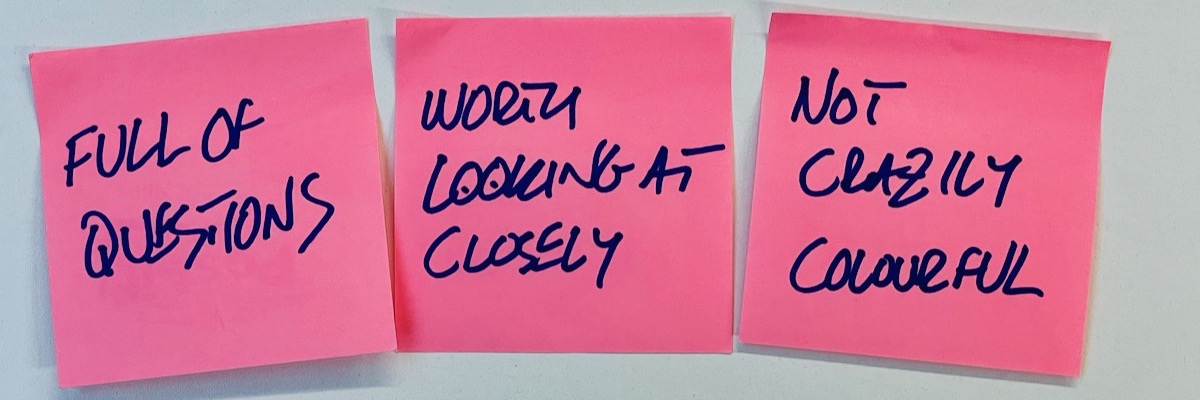 FULL OF
QUESTIONS
WORTH
LOOKING AT
CLOSELY
NOT
CRAZILY
COLOURFUL